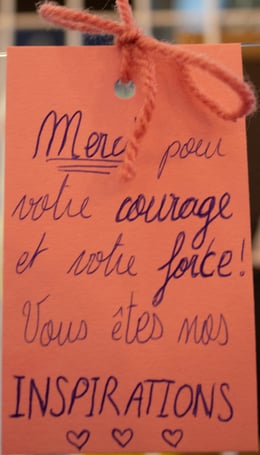 Merci pour
votre courage
et votre force!
Vous êtes nos
INSPIRATIONS